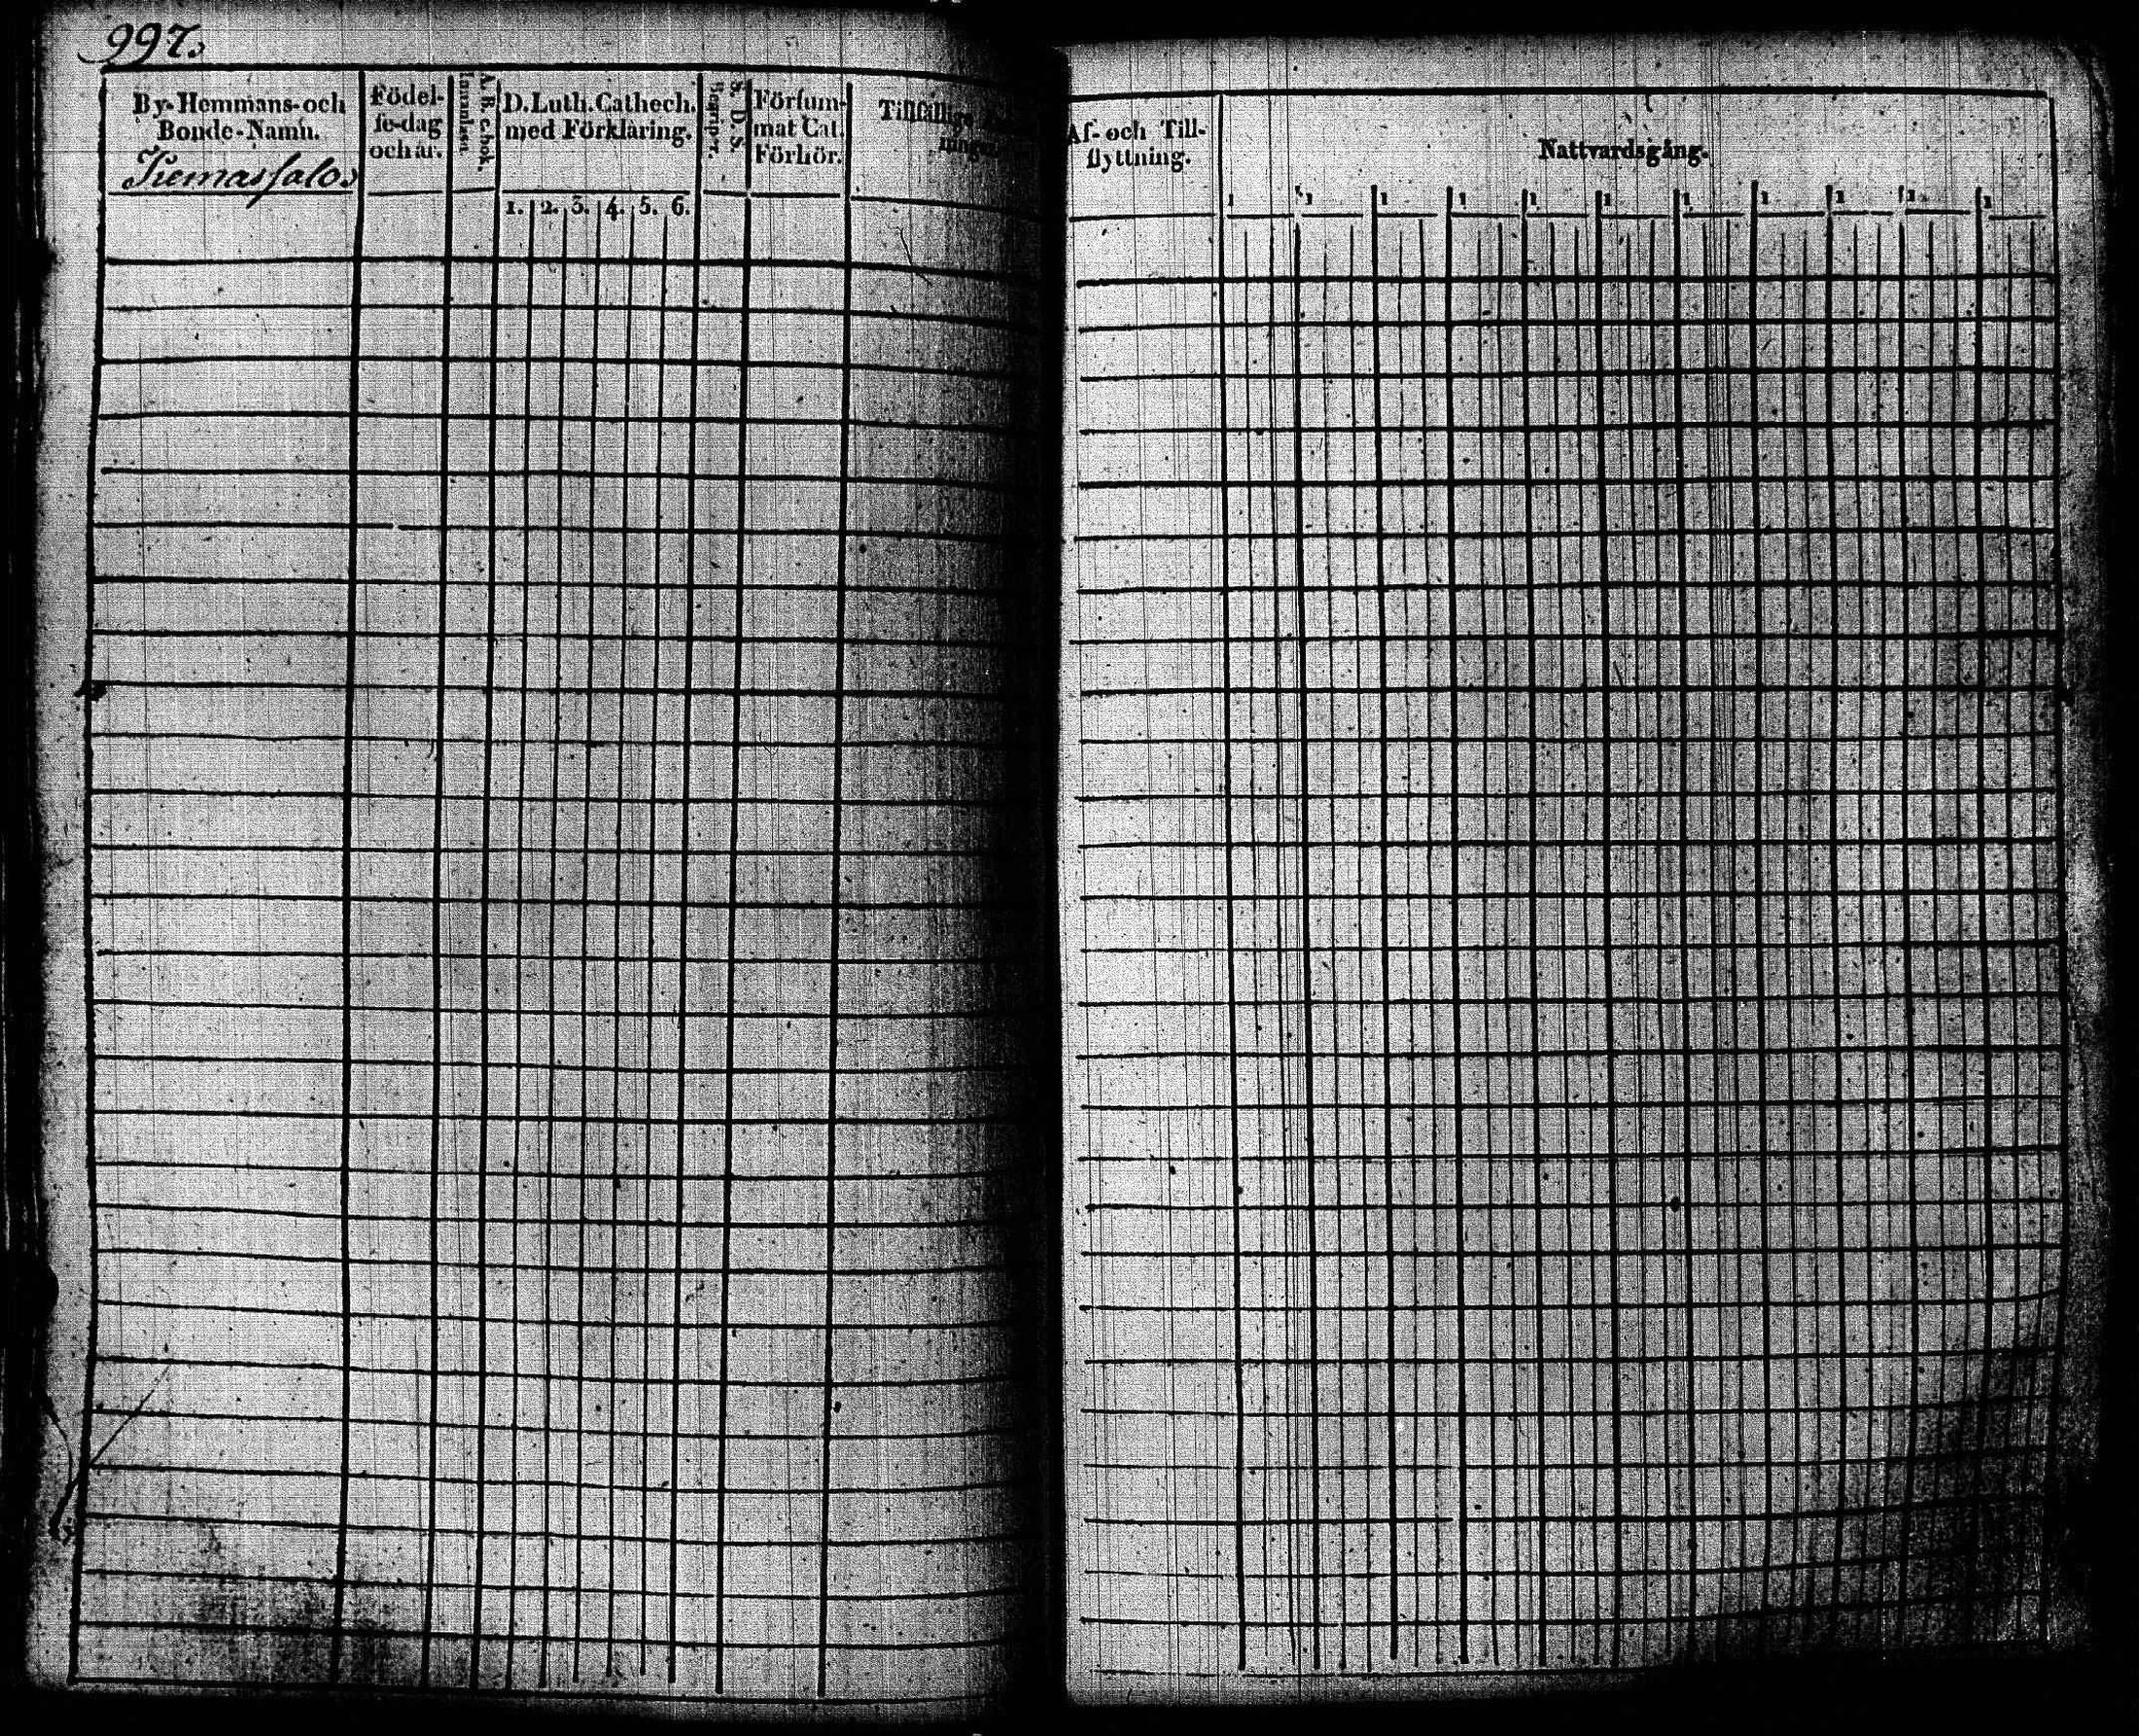 997.
By-Hemmans-och
Bonde-Namn.
Födel-
se-dag
och år.
A. B. c. bok.
Innanläsn.
D. Luth. Cathech.
med Förklaring.
1. 2. 3. 4. 5. 6.
S. D. S.
Begriper.
Försum-
mat Cat.
Förhör.
Tillfällige
Af- och Till-
flyttning.
Nattvardsgång.
1 1 1 1 1 1 1 1 1 1 1